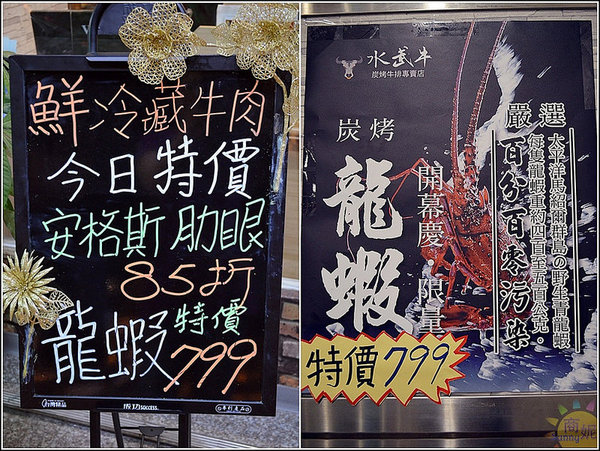 鮮冷藏牛肉
今日特價
安格斯肋眼
85折
龍蝦 特價 799
成功success
水武牛
炭烤牛排專賣店
嚴選
太平洋馬紹爾群島の野生青龍蝦
每隻龍蝦重約四百至五百公克。
百分百零污染
炭烤
龍蝦
開幕慶 限量
特價799